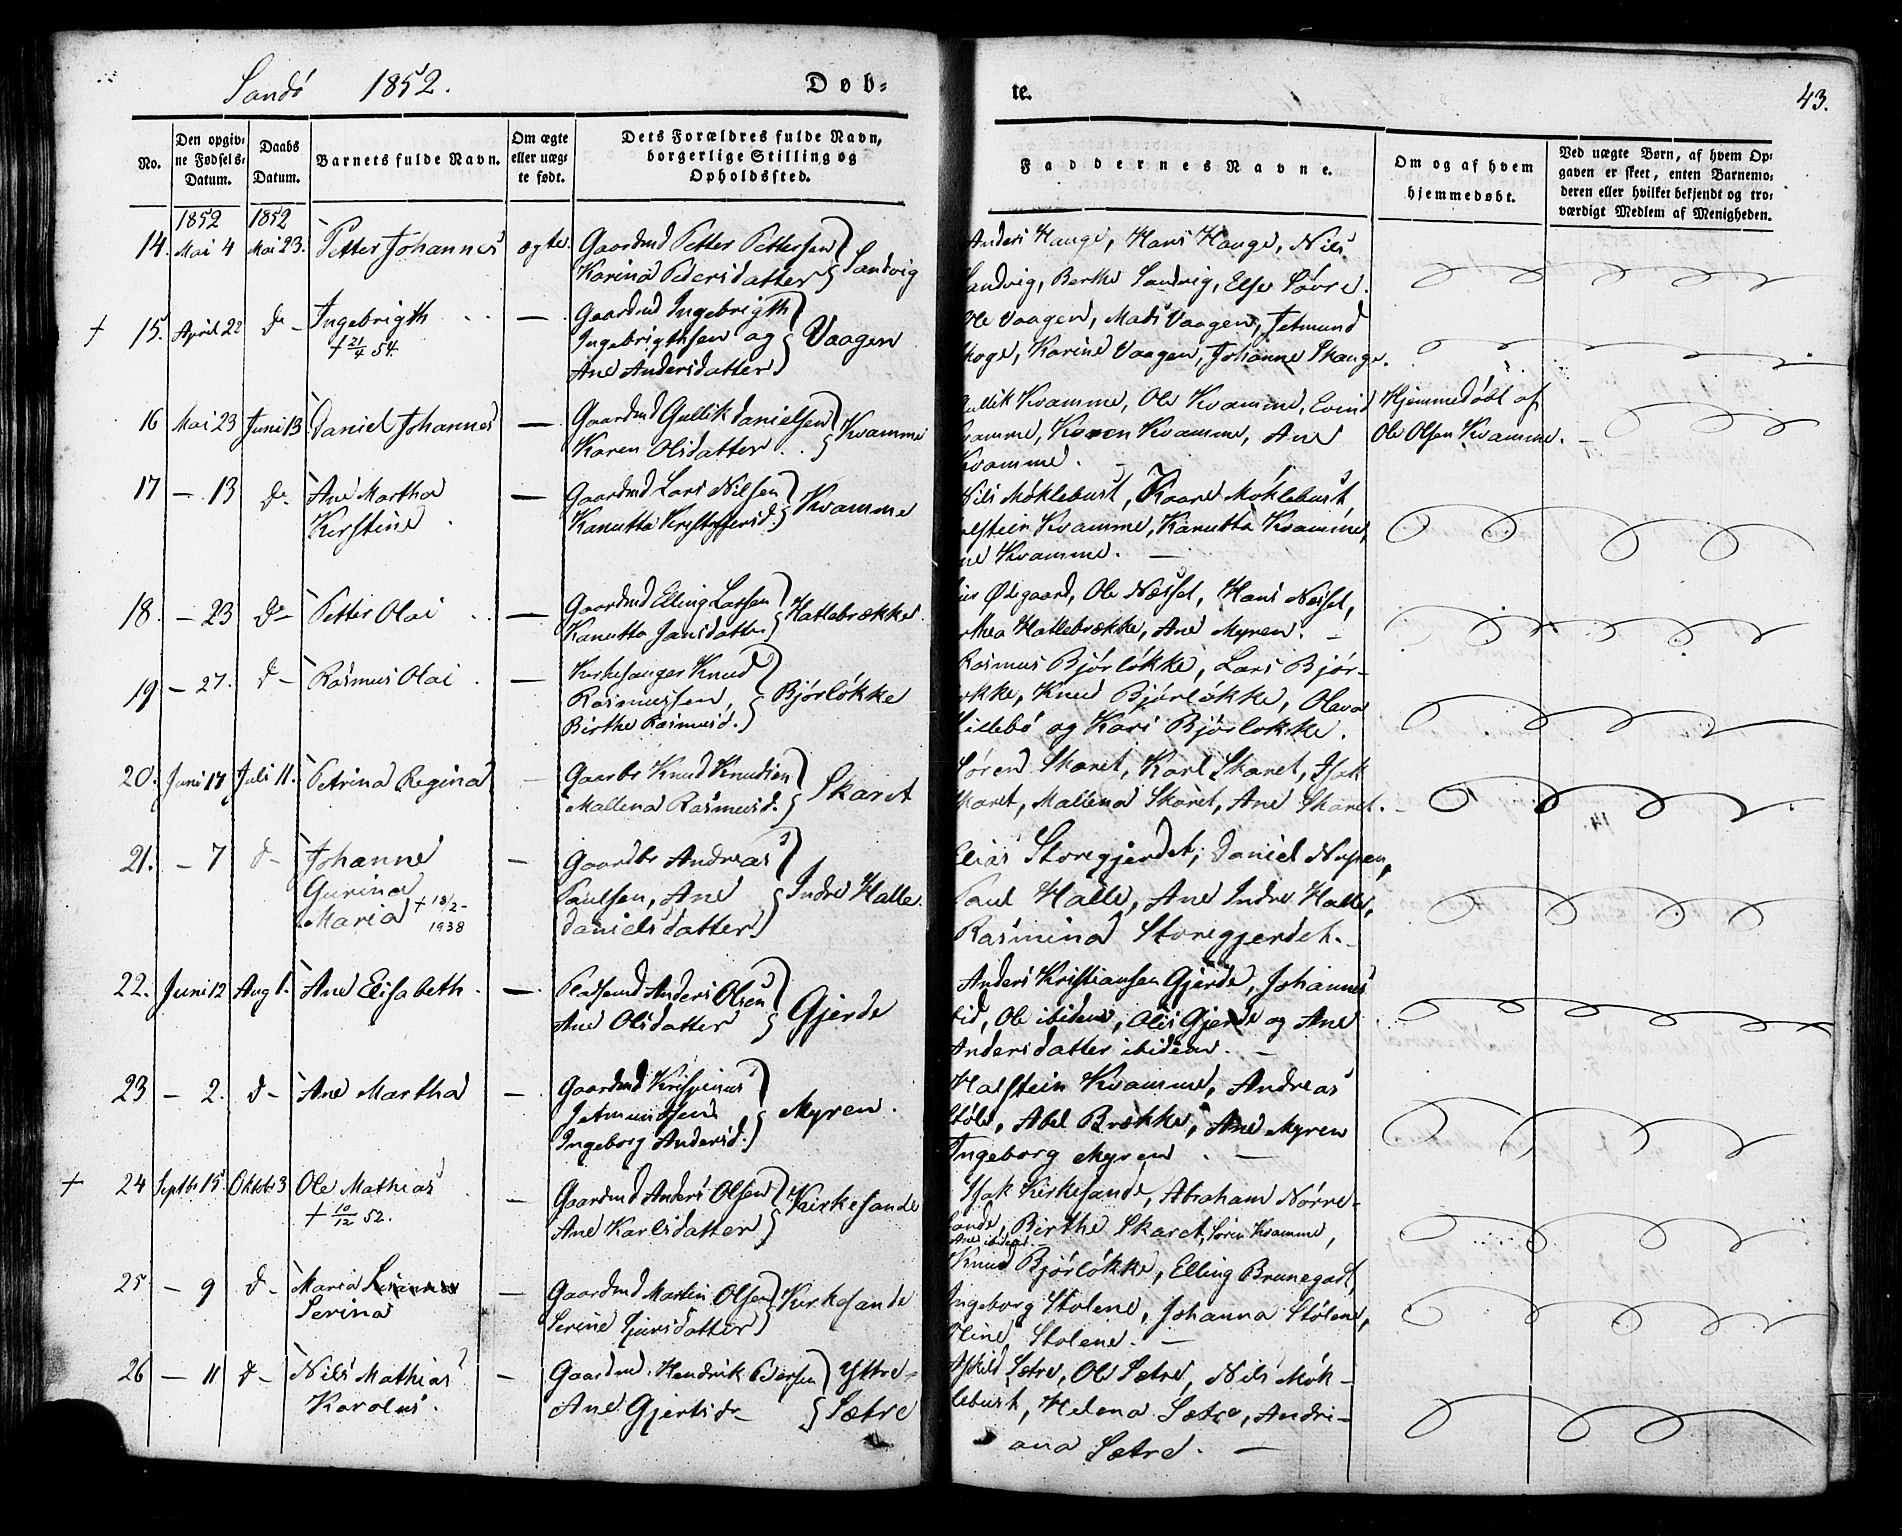 Sandö 1852. Döb=
te. 43.
No. | Den opgiv=ne Fødsels=Datum. | Daabs Datum. | Barnets fulde Navn. | Om ægte eller uæg=te født. | Dets Forældres fulde Navn, borgerlige Stilling og Opholdssted. | Faddernes Navne. | Om og af hvem hjemmedøbt. | Ved uægte Børn, af hvem Op=gaven er skeet, enten Barnemo=deren eller hvilket bekjendt og tro=værdigt Medlem af Menigheden.
1852 1852
14. Mai 4 Mai 23. Petter Johannes ægte. Gaardmd Petter Pettersen
Karina Pedersdatter } Sandvig
Anders Hauge, Hans Hauge, Nils
Sandvig, Berthe Sandvig, Else Søvre.
† 15. April 22 Do - Ingebrigth — Gaardmd Ingebrigth
† 21/4 54. Ingebrigthsen og } Vaagen
Ane Andersdatter
Ole Vaagen, Mads Vaagen, Jetmund
Karine Vaagen, Johanne Skauge.
16 Mai 23 Juni 13 Daniel Johannes — Gaardmd Gullik Danielsen
Karen Olsdatter } Kvamme
Gullik Kvamme, Ole Kvamme, Evind
Kvamme, Karen Kvamme, Ane
Kvamme.
Hjemmedöbt af
Ole Olsen Kvamme.
17 — 13 Do- Ane Martha — Gaardmd Lars Nilsen
Kirstine Kanutta Kristoffersd. } Kvamme
Nils Möklebust, Kaare Möklebust
Kvamme, Kanutta Kvamme,
Ane Kvamme. —
18. — 23 Do- Petter Olai — Gaardmd Elling Larsen
Kanutta Jansdattr } Hatlebrække
Ødegaard, Ole Næsset, Hans Nesset,
Hatlebrække, Ane Myren. —
19 — 27. Do- Rasmus Olai — Kirkesanger Knud
Rasmussen,
Birthe Rasmusd. } Bjørløkke
Rasmus Bjørløkke, Lars Bjør-
løkke, Knud Bjørløkke, Olava
Lillebö og Kari Bjørlokke.
20. Juni 17 Juli 11. Petrina Regina — Gaardbr Knud Knudsen
Mallena Rasmusd. } Skaret
Søren Skaret, Karl Skaret, Isak
Skaret, Mallena Skaret, Ane Skaret.
21. — 7 Do- Johanne — Gaardbr Andreas
Gurina Paulsen, Ane } Indre Halle.
Maria † 18/2- 1938 Danielsdatter
Elias Storegjerdet, Daniel Nupen,
Paul Halle, Ane Indre Halle,
Rasmina Storegjerdet.
22. Juni 12 Aug 1. Ane Elisabeth — Pladsmd Anders Olsen
Ane Olsdatter } Gjerde
Anders Kristiansen Gjerde, Johannes
ibid, Ole ibidem, Olis Gjerde og Ane
Andersdatter ibidem. —
23 — 2. Do- Ane Martha — Gaardmd Krispinus
Jetmundsen
Ingeborg Andersd. } Myren.
Halstein Kvamme, Andreas
Stöle, Abel Brække, Ane Myren
Ingeborg Myren. —
† 24 Septbr 15 Oktbr 3 Ole Mathias — Gaardmd Anders Olsen
† 10/12 52. Ane Karlsdatter } Kirkesande
Isak Kirkesande, Abraham Nörre-
sande, Birthe Skaret, Sören Kvamme,
Ane ibidem.
25 — 9 Do- Maria — Gaardmd Martin Olsen
Serina Serine Sjursdatter } Kirkesande
Knud Bjørløkke, Elling Brunegast,
Ingeborg Stolene, Johanna Stölene,
Oline Stolene. —
26 — 11 Do- Nils Mathias — Gaardmd. Hendrik Pedersen } Yttre-
Karolus. Ane Gjertsdr- Sætre
Askild Sætre, Ole Sætre, Nils Mök-
lebust, Helena Sætre, Andri-
ana Sætre. —